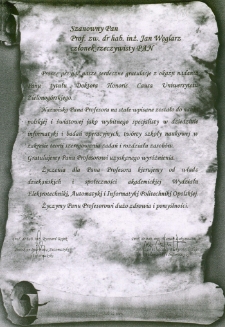 Szanowny Pan
Prof. zw. dr hab. inż. Jan Węglarz
członek rzeczywisty PAN
Proszę przyjąć nasze serdeczne gratulacje z okazji nadania
Panu tytułu Doktora Honoris Causa Uniwersytetu
Zielonogórskiego.
Nazwisko Pana Profesora na stałe wpisane zostało do nauki
polskiej i światowej jako wybitnego specjalisty w dziedzinie
informatyki i badań operacyjnych, twórcy szkoły naukowej w
zakresie teorii szeregowania zadań i rozdziału zasobów.
Gratulujemy Panu Profesorowi uzyskanego wyróżnienia.
Życzenia dla Pana Profesora kierujemy od władz
dziekańskich i społeczności akademickiej Wydziału
Elektrotechniki, Automatyki i Informatyki Politechniki Opolskiej.
Życzymy Panu Profesorowi dużo zdrowia i pomyślności.